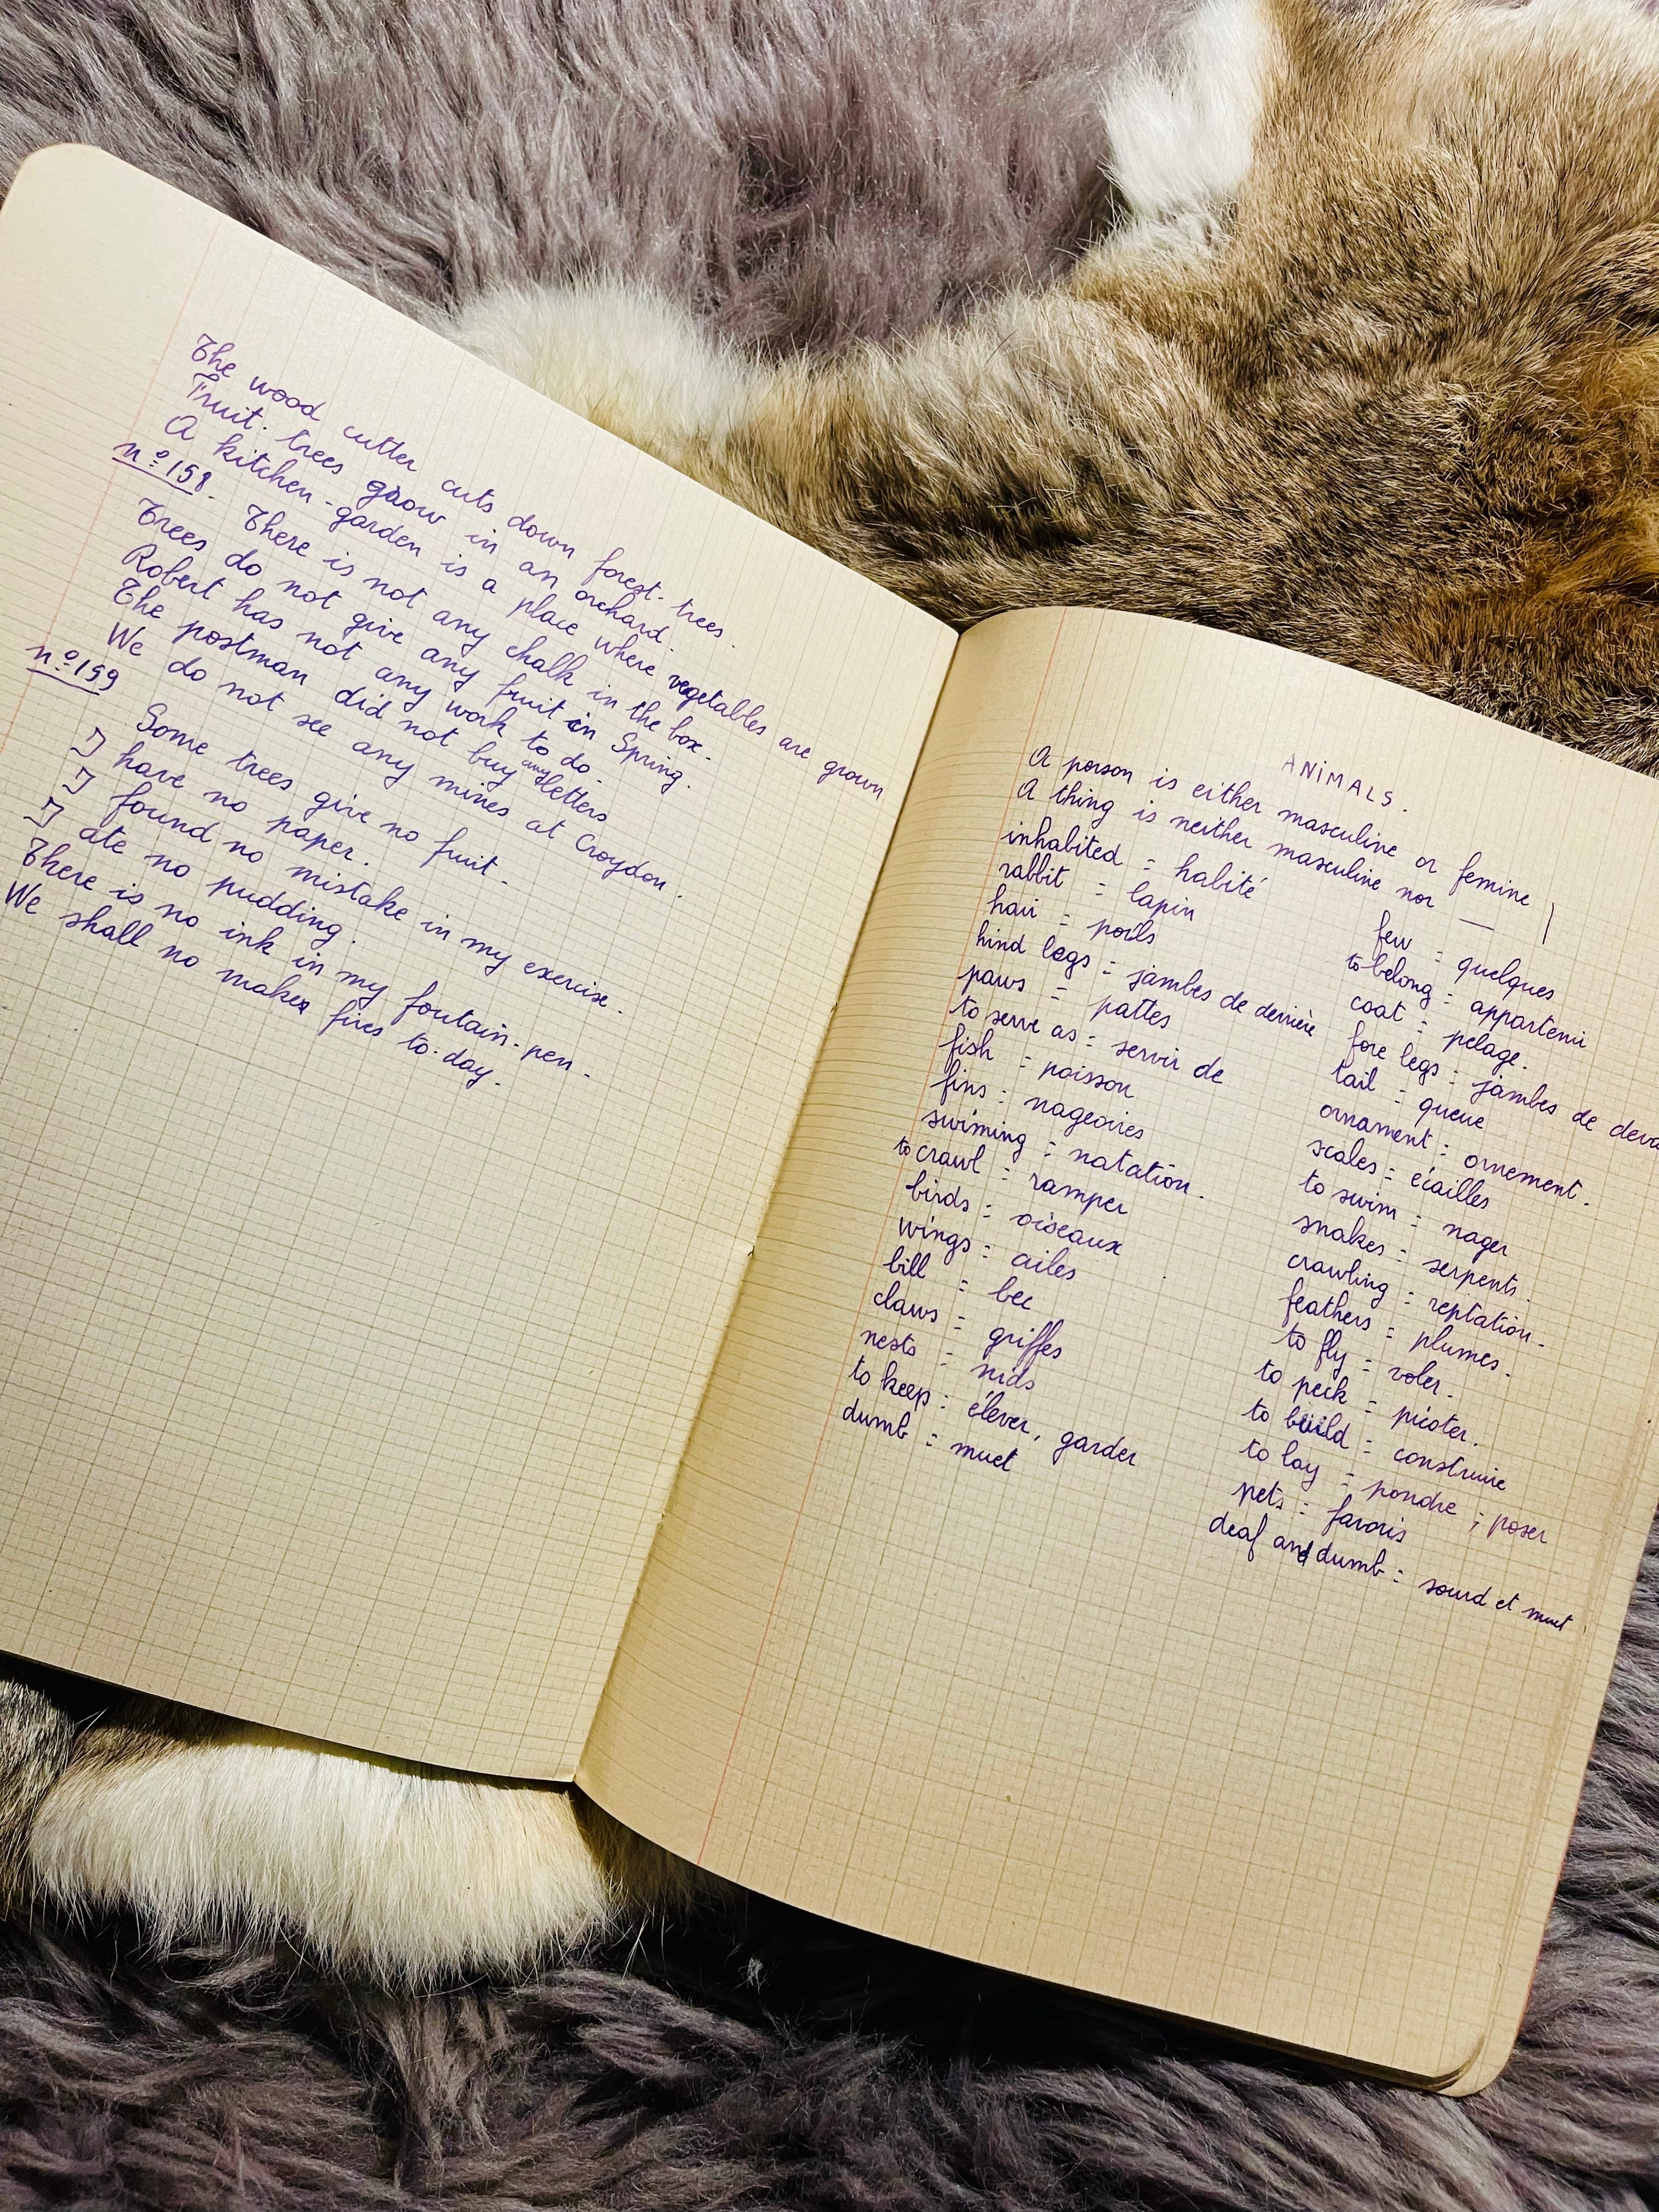 The wood cutter cuts down forest-trees.
Fruit-trees grow in an orchard.
A kitchen-garden is a place where vegetables are grown
nº158. There is not any chalk in the box.
Trees do not give any fruit in Spring.
Robert has not any work to do.
The postman did not buy any letters
We do not see any mines at Croydon.
nº159
Some trees give no fruit.
I have no paper.
I found no mistake in my exercise.
I ate no pudding.
There is no ink in my foutain-pen.
We shall no make fires to-day.
ANIMALS.
A person is either masculine or femine
A thing is neither masculine nor —
inhabited = habité
rabbit = lapin
hair = poils
hind legs = jambes de derrière
paws = pattes
to serve as = servir de
fish = poisson
fins = nageoires
swiming = natation.
to crawl = ramper
birds = oiseaux
wings = ailes
bill = bec
claws = griffes
nests = nids
to keep = élever, garder
dumb = muet
few = quelques
to belong = appartenir
coat = pelage.
fore legs = jambes de
tail = queue
ornament = ornement.
scales = écailles
to swim = nager
snakes = serpents.
crawling = reptation.
feathers = plumes.
to fly = voler.
to peck = picoter.
to build = construire
to lay = pondre ; poser
pets = favoris
deaf and dumb = sourd et muet